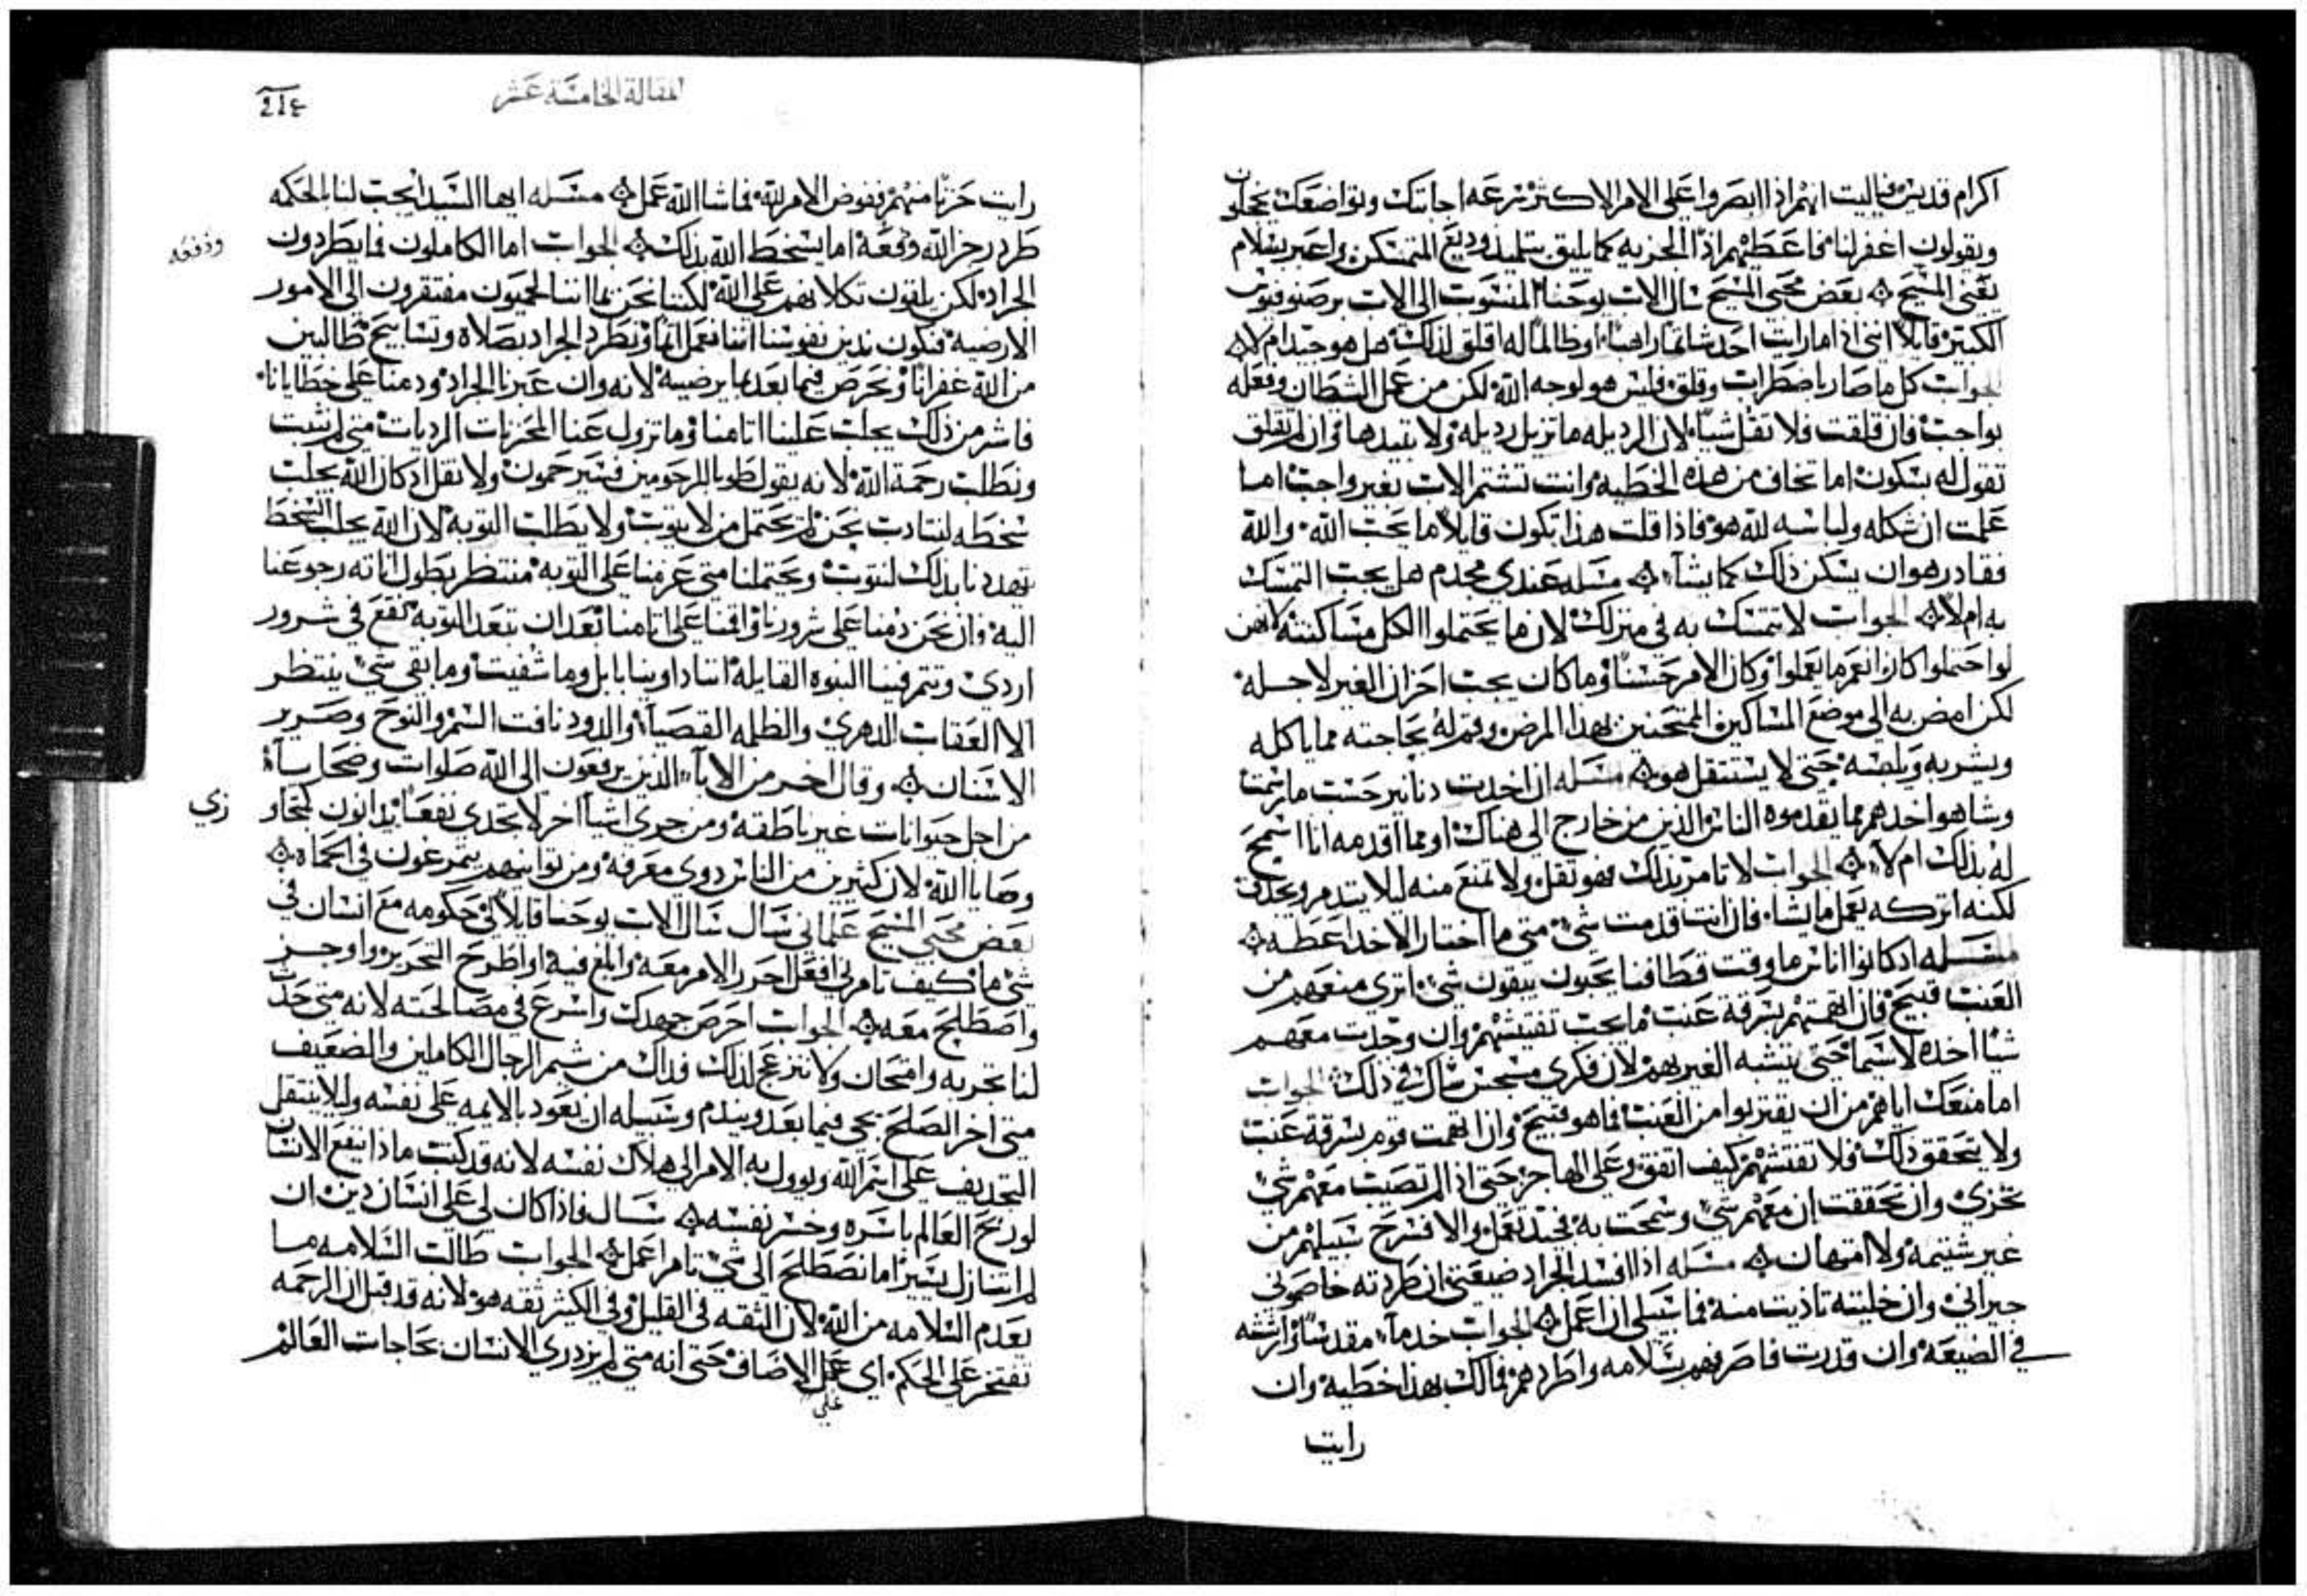 اكرام قديس فياليت انهم اذا ابصروا على الامر الاكثر سرعه اجابتك وتواضعك يخجلون
ويقولون اغفر لنا فاعطيهم اذا الخزيه كما يليق بتلميذ وديع المتمسكن واعبر بسلام
يقنى المسيح بعض محبي المسيح سال الاب يوحنا المنسوب الى الاب برصنوفيوس
الكبير قايلا انني اذا ما رايت احد شاتما راهبا او ظالما له اقلق لذلك هل هو جيد ام لا
الجواب كل ما صار باضطراب وقلق فليس هو لوجه الله لكن من عمل الشيطان وفعله
بواجب فان قلقت فلا تقل شيا لان الرديله ما تزيل رديله ولا تبيدها وان لم تقلق
تقول له بسكون اما تخاف من هذه الخطيه وانت تشتم الاب بغير واجب اما
علمت ان شكله ولباسه لله هو فاذا قلت هذا تكون قايلا ما يحب الله والله
فقادر هو ان يسكن ذلك كما يشآء مسله عندي مجدم هل يجب التمسك
به ام لا الجواب لا تتمسك به في منزلك لان ما يحتملوا الكل مساكنته لانهن
لو احتملوا كان انعم ما يعملوا وكان الامر حسنا وما كان يجب احزان الغير لاجله
لكن امض به الى موضع المساكين الممتحنين بهذا المرض وقم له بحاجته مما ياكله
ويشربه ويلبسه حتى لا يستثقل هو مسله ان اخدت دنانير حسب ما رسمت
وشا هو اخدهم مما يقدموه الناس الذين من خارج الى هناك او مما اقدمه انا اسمح
له بذلك ام لا الجواب لا تامر بذلك فهو ثقل ولا تمنع منه ليلا يتدمر ويجدف
لكنه اتركه يعمل ما يشاء فان انت قدمت شي متى ما اختار الاخد اعطه
مسله اد كانوا اناس ما وقت قطافنا يحبون يبقون شي اترى منعهم من
العنب قبيح فان اتهمتهم بسرقة عنب ما يجب تفتيشهم وان وجدت معهم
شيا اخده لا سيما حتى يتشبه الغير بهم لان فكري مسجس شاك في ذلك الجواب
اما منعك اياهم من ان يقتربوا من العنب فما هو قبيح وان اتهمت قوم بسرقة عنب
ولا يتحقق ذلك فلا تفتشهم كيف اتفق وعلى الهاجز حتى اذا لم تصيب معهم شي
تخزي وان تحققت ان معهم شي وسمحت به فجيد تعمل والا فسرح سبيلهم من
غير شتيمه ولا امتهان مسله اذا افسد الجراد ضيعتي ان طردته خاصموني
جيراني وان خليته تاذيت منه فما سبيلي ان اعمل الجواب خد مآء مقدسا وارشه
في الضيعه وان قدرت فاصرفهم بسلامه واطردهم فما لك بهذا خطيه وان
رايت
المقالة الخامسة عشر
214
رايت حزنا منهم ففوض الامر لله فما شا الله عمل مسله ايها السيد ايجب لنا بالحكمه
طرد رجز الله ودفعه اما يسخط الله بذلك الجواب اما الكاملون فما يطردون
ودفعه
الجراد لكن يلقون تكلانهم على الله لكننا نحن بما اننا لحميون مفتقرون الى الامور
الارضيه فنكون ندين نفوسنا اننا نعمل اثما ونطرد الجراد بصلاه وتسابيح طالبين
من الله غفرانا ونحرص فيما بعد بما يرضيه لانه وان عبرنا الجراد ودمنا على خطايانا
فاشر من ذلك يجلب علينا اثامنا وما تزول عنا المحزيات الرديات متى لم نثبت
ونطلب رحمة الله لانه يقول طوبا للرحومين فسيرحمون ولا نقل اد كان الله يجلب
سخطه لنتادب نحن لم يحتمل من لا يتوب ولا يطلب التوبه لان الله يجلب السخط
يهددنا بذلك لنتوب ويحتملنا متى عزمنا على التوبه منتظر بطول اناته رجوعنا
اليه وان نحن دمنا على شرورنا واقمنا على اثامنا بعد ان نتعد التوبه نقع في شرور
اردي ويتم فينا النبوه القايله اننا داوينا بابل وما شفيت وما بقي شي ينتظر
الا العقاب الدهري والظلمه القصيا والدود نافت السم والنوح وصرير
الاسنان وقال اخر من الابآء الذين يرفعون الى الله صلوات وضحايا
من اجل حيوانات غير ناطقه ومن جرى اشيا اخر لا تجدي نفعا يدانون كمتجاو
زي
وصايا الله لان كثيرين من الناس دوي معرفه ومن توانيهم يتمرغون في الحماه
بعض محبي المسيح علماني سال سال الاب يوحنا قايلا لي حكومه مع انسان في
شي ما كيف تامرني افعل احرر الامر معه وابلغ فيه او اطرح التحرير واوجز
واصطلح معه الجواب احرص جهدك واسرع في مصالحته لانه متى حدث
لنا تجربه وامتحان ولا ننزعج لذلك فداك من شيم الرجال الكاملين والضعيف
متى اخر الصلح يجي فيما بعد ويندم وسبيله ان يعود بالايمه على نفسه وليلا ينتقل
التجديف على اسم الله ويوول به الامر الى هلاك نفسه لانه قد كتب ماذا ينفع الانسان
لو ربح العالم باسره وخسر نفسه سال فاذا كان لي على انسان دين ان
لم اتنازل يسير اما نصطلح الى شي تامر اعمل الجواب طالب السلامه ما
يعدم السلامه من الله لان الثقه في القليل وفي الكثير ثقه هو لانه قد قيل ان الرحمه
تفتخر على الحكم اي عمل الاضاف حتى انه متى لم يزدري الانسان بحاجات العالم
على